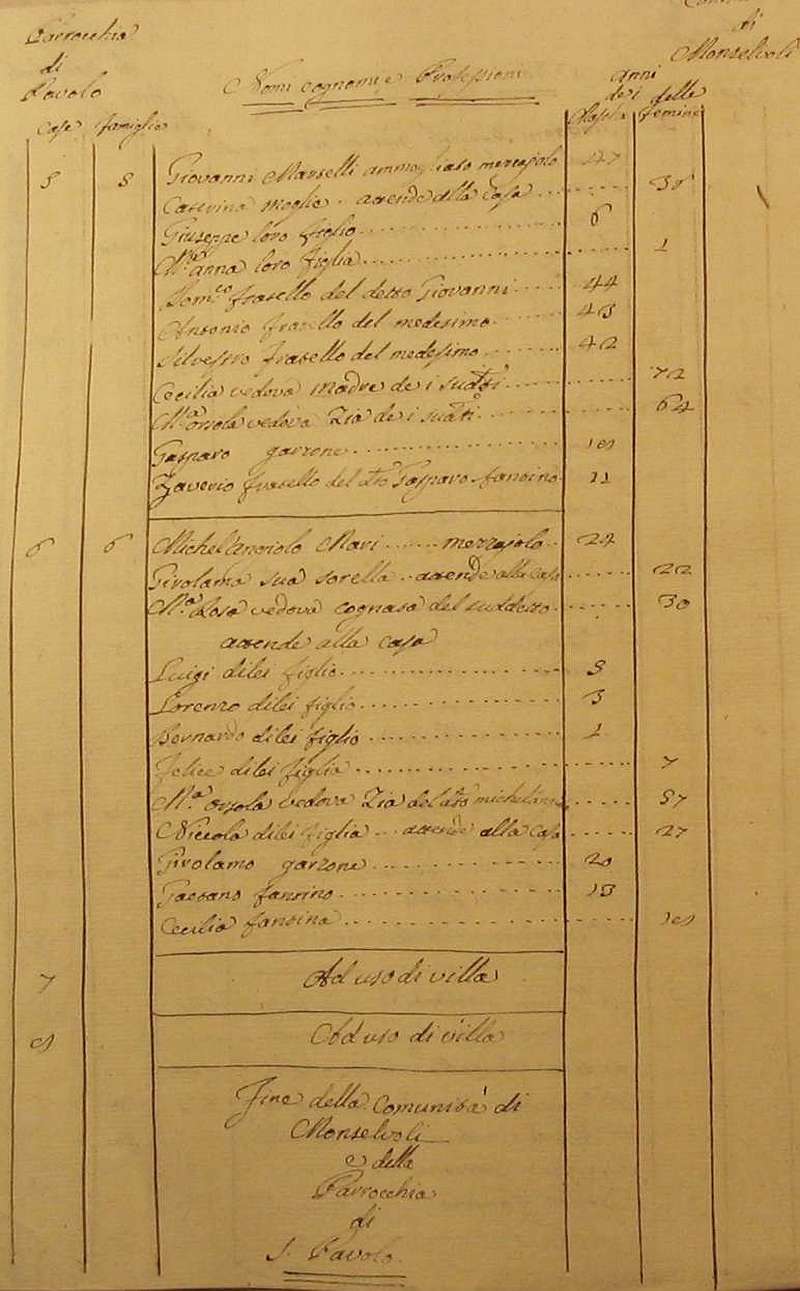 Parrocchia
di
Pavolo
di
Monselvoli
Nomi cognomi e Professioni
anni
dei delle
Case famiglie Maschi femine
5 5 Giovanni Marselli ammog:liato mezzajolo 47
Caterina moglie . attende alla casa 35
Giuseppe loro figlio 6
M.a anna loro figlia 1
Dom.co fratello del detto Giovanni 44
Antonio fratello del medesimo 43
Silvestro fratello del medesimo 42
Cecilia vedova Madre de i sudti 72
M.a Orsola vedova Zia de i sudti 64
Gasparo garzone
Zaverio fratello del dto Gasparo fantino 11
6 6 Michel'Angiolo Mari mezzajolo 24
Girolama sua sorella attende alla Casa 22
M.a Rosa vedova cognata del suddetto 30
attende alla casa
Luigi di lei figlio
Lorenzo di lei figlio 3
Bernardo di lei figlio 1
Felice di lei figlia 7
M.a Orsola vedova Zia del dto 57
Niccola di lei figlia attende alla Casa 27
Girolamo garzone 20
Gaetano fantino 13
Cecilia fantina
7 Ad uso di villa
Ad uso di villa
Fine della Comunità di
Monselvoli
e della
Parrocchia
di
S. Pavolo